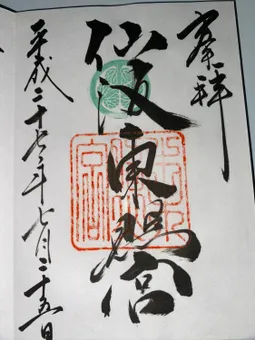 奉拝
仙波東照宮
平成二十七年七月二十五日